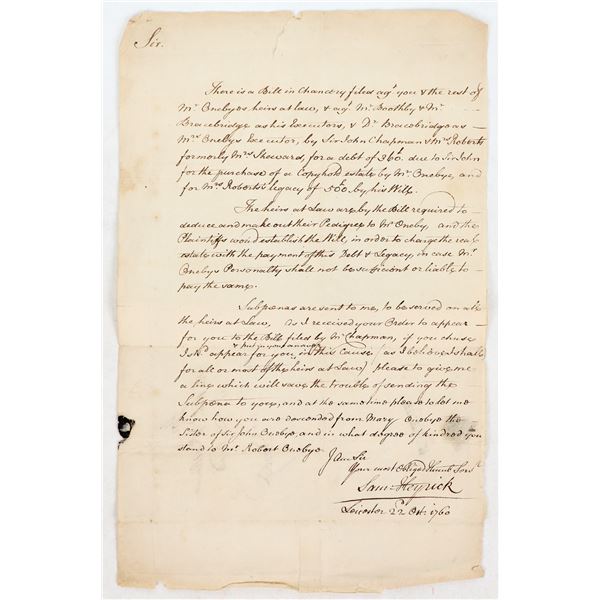 Sir.
There is a Bill in Chancery filed agt. you & the rest of
Mr. Onebyes heirs at law, & agt. Mr. Boothby & Mr.
Bracebridge as his Executors, & Dr. Bracebridge as
Mrs. Onebys Executor, by Sir John Chapman & Mrs. Roberts
formerly Mrs. Sheward, for a debt of 360l. due to Sir John
for the purchase of a Copyhold estate by Mr. Onebye, and
for Mrs. Roberts's legacy of 500l. by his Will.
The heirs at Law are by the Bill required to
deduce and make out their Pedigree to Mr. Oneby, and the
Plaintiffs would establish the Will, in order to charge the real
estate with the payment of this Debt & Legacy, in case Mr.
Onebys Personalty shall not be sufficient or liable to
pay the same.
Subpœnas are sent to me, to be served on all
the heirs at Law, As I received your Order to appear
for you to the Bill filed by Mr. Chapman, if you chuse
& put in your answer
I shd. appear for you, in this Cause (as I believe I shall
for all or most of the heirs at Law) please to give me
a line which will save the trouble of sending the
Subpœna to you, and at the same time please to let me
know how you are descended from Mary Onebye the
Sister of Sir John Onebye, and in what degree of kindred you
stand to Mr. Robert Onebye.
I am Sir
Your most Obliged Humb. Servt.
Saml. Heyrick
Leicester 22d Octr. 1760